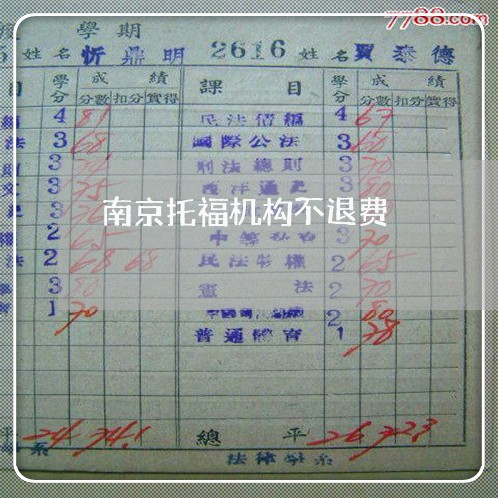 7788.com
學期
姓名 忻鼎明 2616 姓名 賈泰德
目 學分 成績 課目 學分 成績
分數 扣分 實得 分數 扣分 實得
4 81 民法債編 4 67
法 3 68 國際公法 3 60
3 刑法總則 3 70
文 3 75 西洋通史 3 80
南京托福机构不退费
權 2 65 3 70
法 2 68 68 民法物權 2 65
3 80 憲法 2 70
1 70 2 80
普通體育 1 78
平 24 74.1 總平 26 72.3
系 法律學系